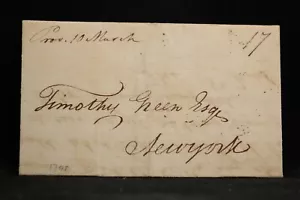 Prov. 10 March
17
Timothy Green Esqr
Newyork
1798